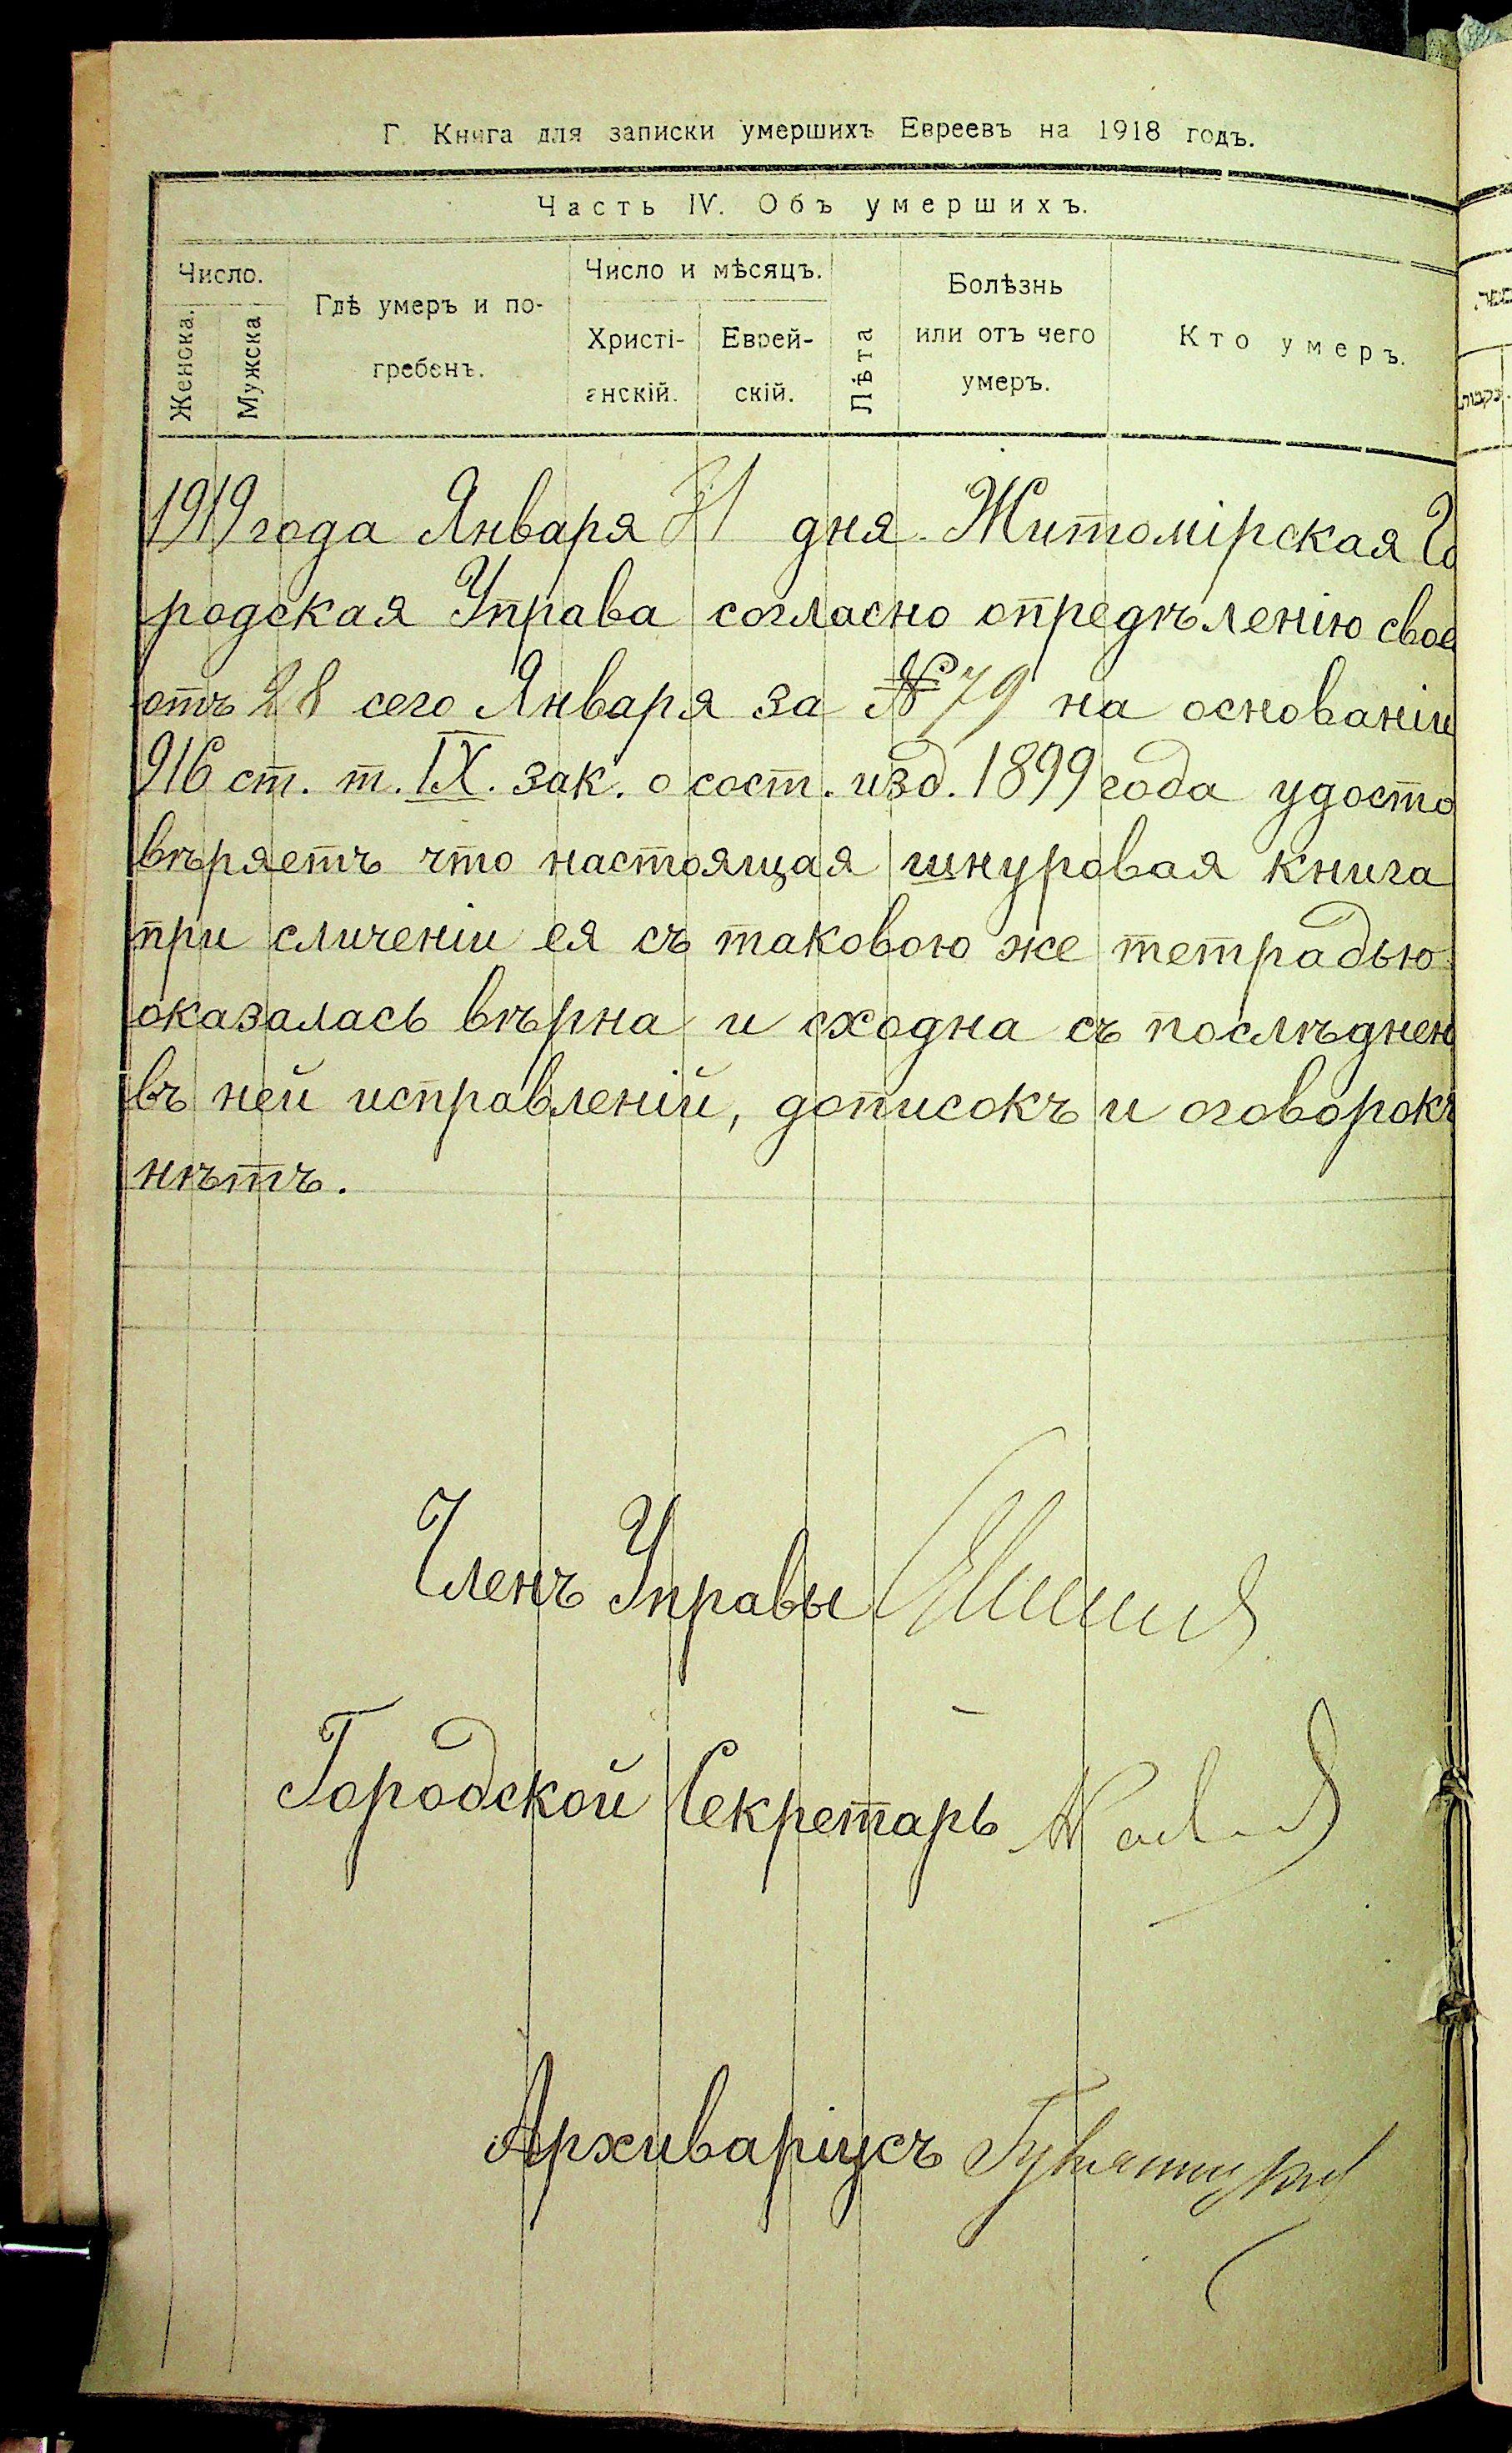 Г. Книга для записки умершихъ Евреевъ на 1918 годъ.
Часть IV. Объ умершихъ.
Число.
Женска.
Мужска
Гдѣ умеръ и по-
гребенъ.
Число и мѣсяцъ.
Христі-
анскій.
Еврей-
скій.
Лѣта
Болѣзнь
или отъ чего
умеръ.
Кто умеръ.
1919 года Января 31 дня Житомірская Го
родская Управа согласно опредѣленію свое
отъ 28 сего Января за № 79 на основаніи
916 ст. т. IX. зак. о сост. изд. 1899 года удосто
вѣряетъ что настоящая шнуровая книга
при сличеніи ея съ таковою же тетрадью
оказалась вѣрна и сходна съ послѣднею
въ ней исправленій, дописокъ и оговорокъ
нѣтъ.
Членъ Управы
Городской Секретарь
Архиваріусъ